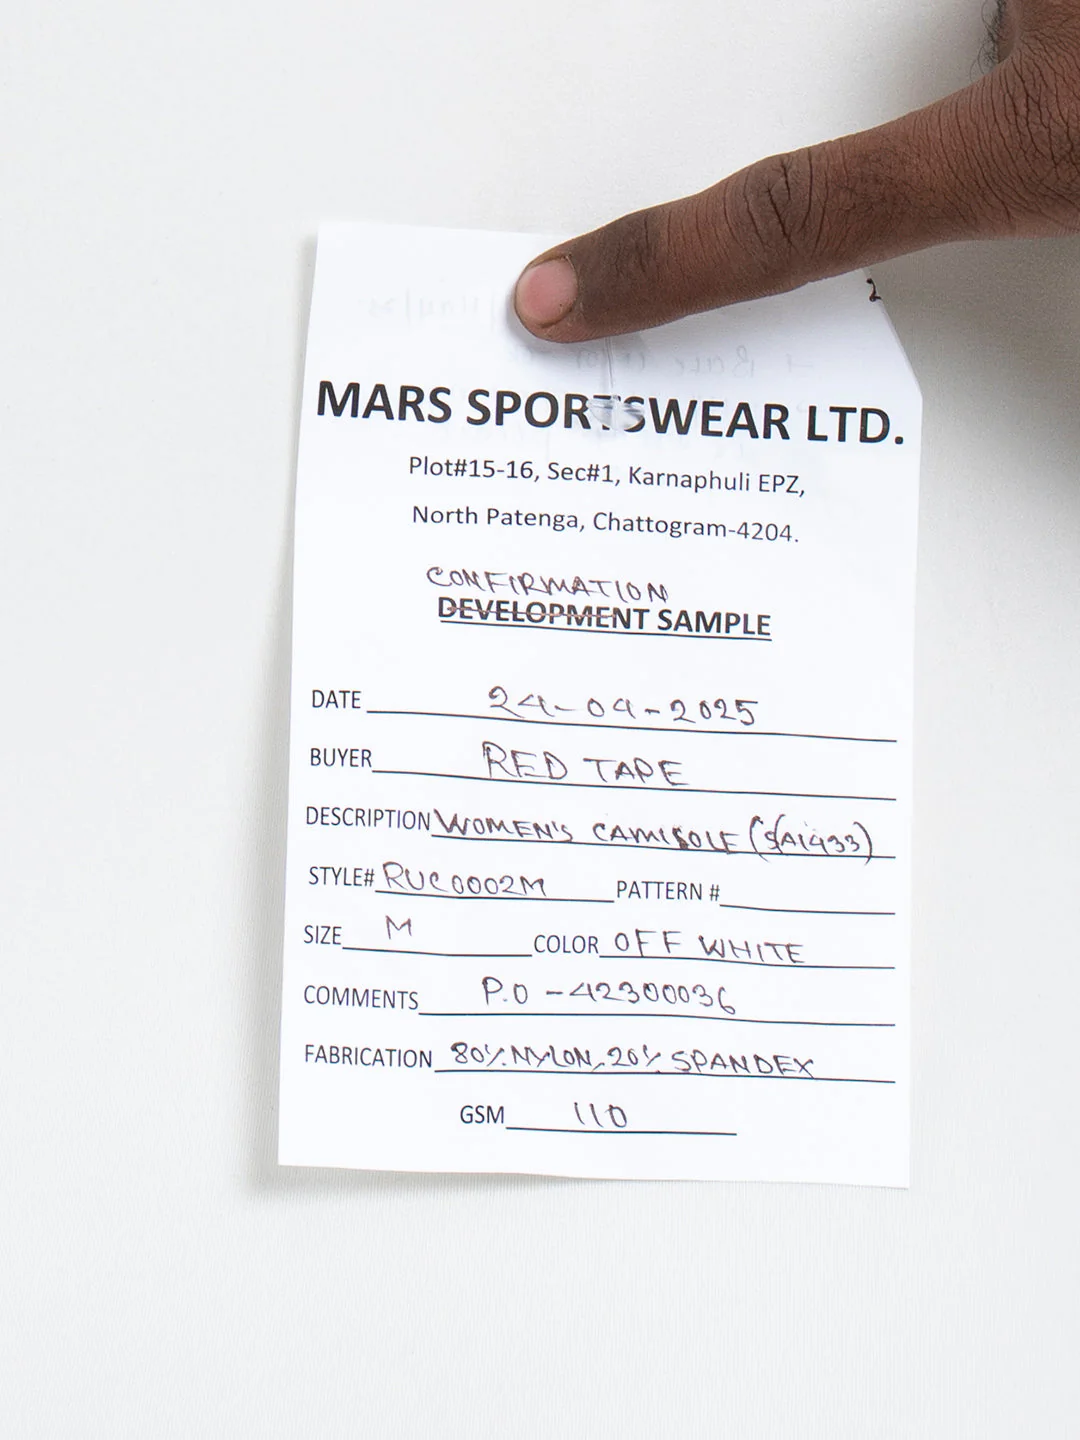 MARS SPORTSWEAR LTD.
Plot#15-16, Sec#1, Karnaphuli EPZ,
North Patenga, Chattogram-4204.
CONFIRMATION
DEVELOPMENT SAMPLE
DATE 24-04-2025
BUYER RED TAPE
DESCRIPTION WOMEN'S CAMISOLE (SA1433)
STYLE# RUC0002M PATTERN #
SIZE M COLOR OFF WHITE
COMMENTS P.O - 42300036
FABRICATION 80% NYLON, 20% SPANDEX
GSM 110